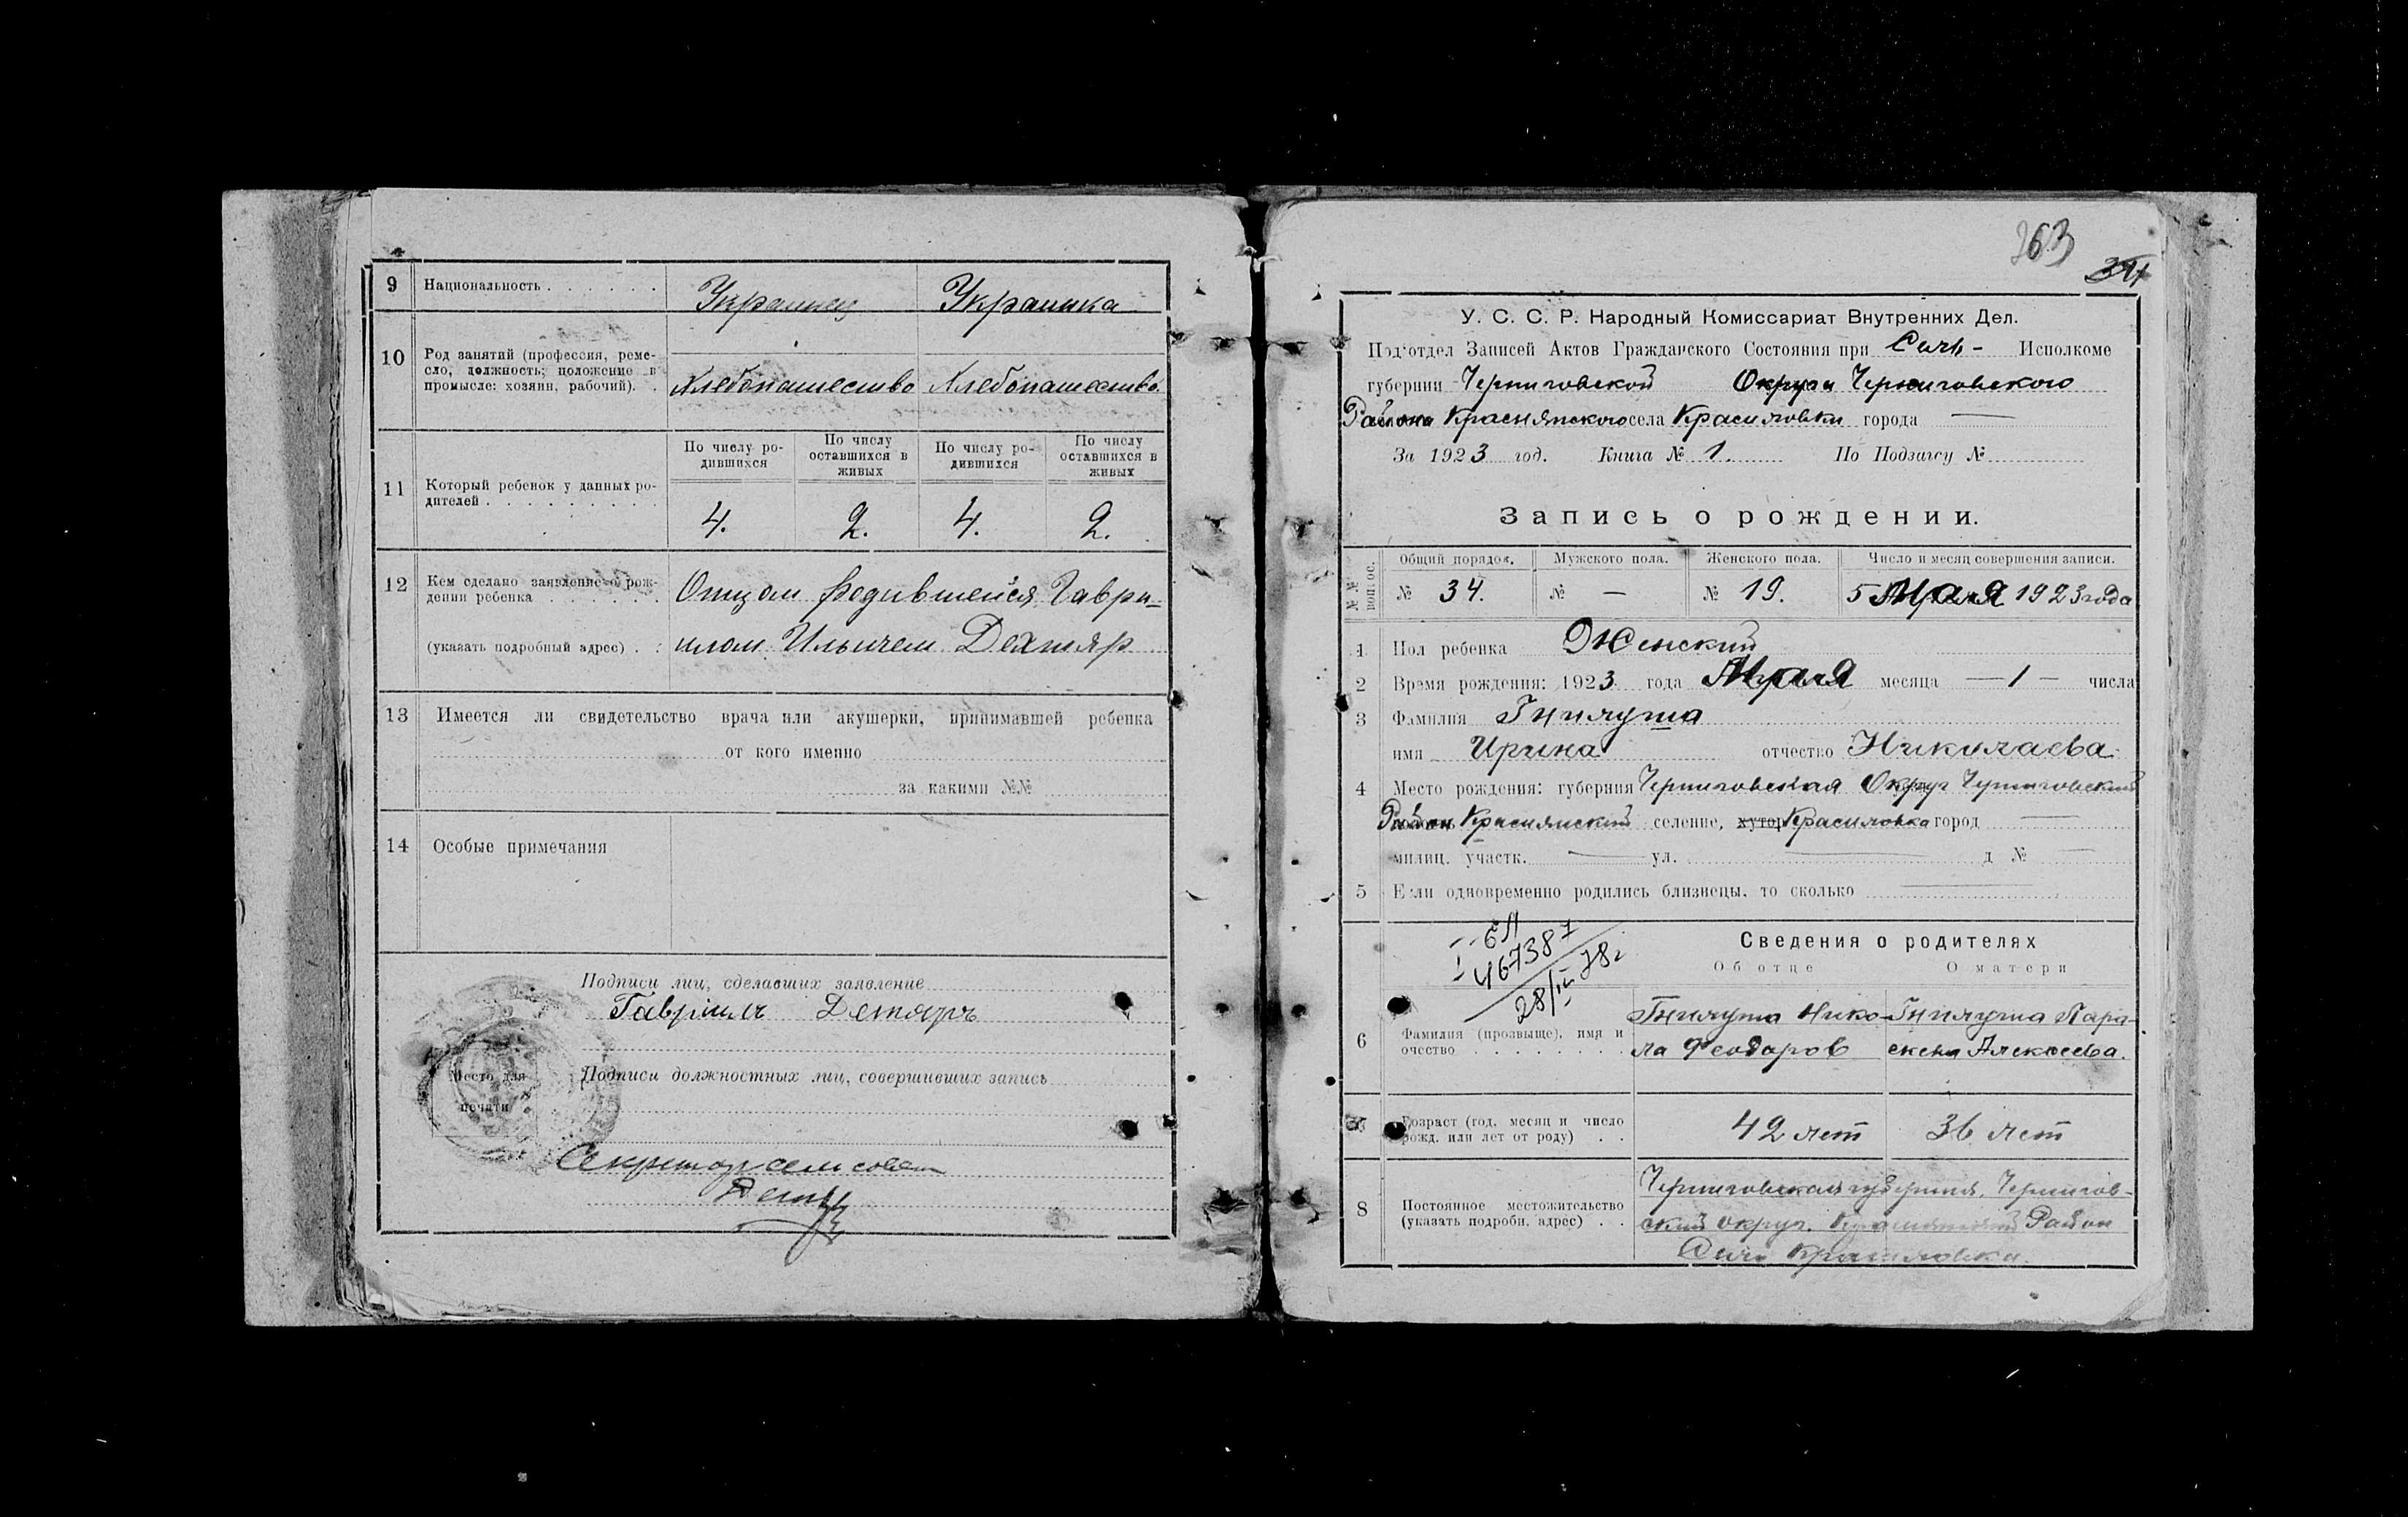 9 Национальность Украинец Украинка
10 Род занятий (профессия, реме-
сло, должность; положение в
промысле: хозяин, рабочий). Хлебопашество Хлебопашество
По числу ро-
дившихся
По числу
оставшихся в
живых
По числу ро-
дившихся
По числу
оставшихся в
живых
11 Который ребенок у данных ро-
дителей
4. 2. 4. 2.
12 Кем сделано заявление о рож-
дении ребенка Отцом родившейся Гаври-
(указать подробный адрес) илом Ильичем Дехтяр
13 Имеется ли свидетельство врача или акушерки, принимавшей ребенка
от кого именно
за какими №№
14 Особые примечания
Подписи лиц, сделавших заявление
Гавриилъ Детяръ
Место для
печати
Подписи должностных лиц, совершивших запись
Секретар сельсовета
263
У. С. С. Р. Народный Комиссариат Внутренних Дел.
Подотдел Записей Актов Гражданского Состояния при Сель- Исполкоме
губернии Черниговской Округи Черниговского
Района Краснянского села Красиловки города —
За 1923 год. Книга № 1. По Подзагсу №
Запись о рождении.
№№ вопрос.
Общий порядок. Мужского пола. Женского пола. Число и месяц совершения записи.
№ 34. № — № 19. 5 Мая 1923 года
1 Пол ребенка Женский
2 Время рождения: 1923 года Мая месяца — 1 — числа
3 Фамилия Гнилуша
имя Ирина отчество Николаева
4 Место рождения: губерния Черниговская Округ Черниговский
Район Краснянский селение, хутор Красиловка город —
милиц. участк. — ул. — д № —
5 Если одновременно родились близнецы, то сколько —
467387
28/IV 78г
Сведения о родителях
Об отце О матери
6 Фамилия (прозвыще), имя и
очество
Гнилуша Нико-
ла Феодоров
Гнилуша Пара-
скева Алексеева.
7 Возраст (год, месяц и число
рожд. или лет от роду) 42 лет 36 лет
8 Постоянное местожительство
(указать подробн. адрес)
Черниговская губерния, Чернигов-
ский округ, Краснянский Район
Село Красиловка.